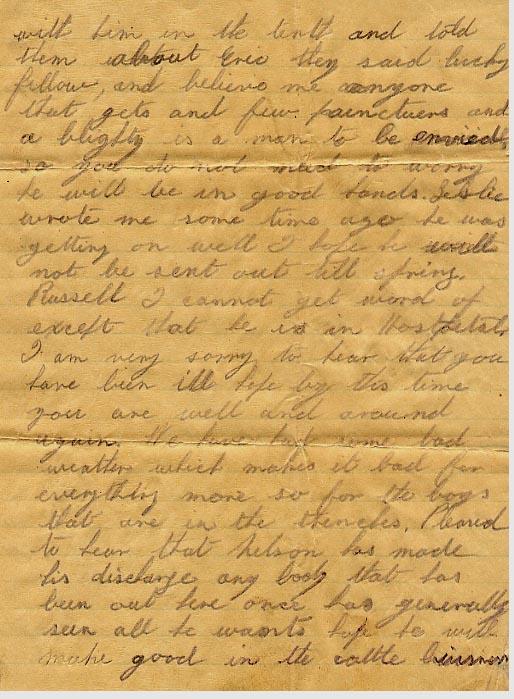 with him in the tenth and told
them about Eric they said lucky
fellow, and believe me anyone
that gets and few painctuers and
a blighty is a man to be envied,
so you do not need to worry
he will be in good hands. Leslie
wrote me some time ago he was
getting on well I hope he will
not be sent out till spring.
Russell I cannot get word of
except that he is in Hospital.
I am very sorry to hear that you
have been ill hope by this time
you are well and around
again. We have had some bad
weather which makes it bad for
everything more so for the boys
that are in the trenches. Pleased
to hear that Nelson has made
his discharge any body that has
been out here once has generally
seen all he wants hope he will
make good in the cattle